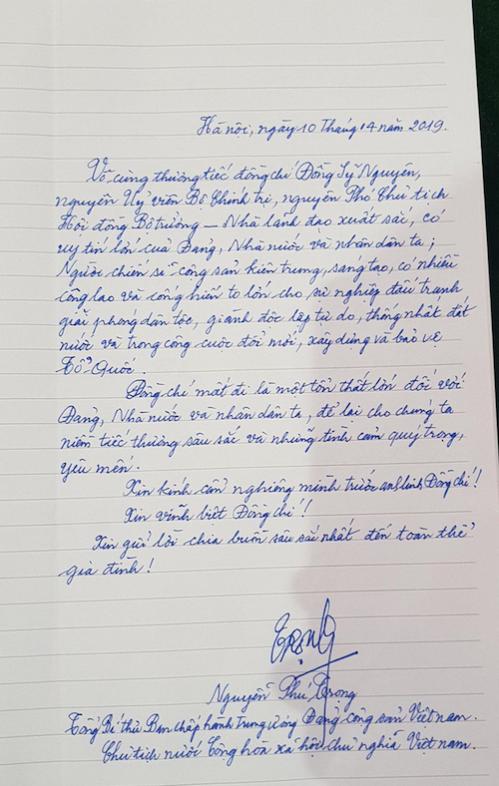 Hà Nội, ngày 10 Tháng 4 năm 2019.
Vô cùng thương tiếc đồng chí Đồng Sỹ Nguyên,
nguyên Uỷ viên Bộ Chính trị, nguyên Phó Chủ tịch
Hội đồng Bộ trưởng – Nhà lãnh đạo xuất sắc, có
uy tín lớn của Đảng, Nhà nước và nhân dân ta;
Người chiến sĩ cộng sản kiên trung, sáng tạo, có nhiều
công lao và cống hiến to lớn cho sự nghiệp đấu tranh
giải phóng dân tộc, giành độc lập tự do, thống nhất đất
nước và trong công cuộc đổi mới, xây dựng và bảo vệ
Tổ Quốc.
Đồng chí mất đi là một tổn thất lớn đối với
Đảng, Nhà nước và nhân dân ta, để lại cho chúng ta
niềm tiếc thương sâu sắc và những tình cảm quý trọng,
yêu mến.
Xin kính cẩn nghiêng mình trước anh linh Đồng chí!
Xin vĩnh biệt Đồng chí!
Xin gửi lời chia buồn sâu sắc nhất đến toàn thể
gia đình!
Nguyễn Phú Trọng
Tổng Bí thư Ban chấp hành Trung ương Đảng cộng sản Việt Nam.
Chủ tịch nước Cộng hòa xã hội chủ nghĩa Việt Nam.